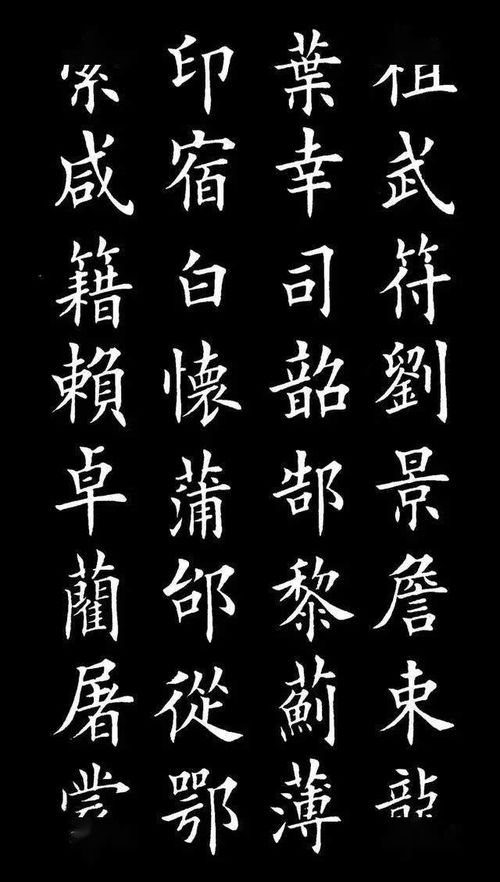 祖武符劉景詹束龍
葉幸司韶郜黎薊薄
印宿白懷蒲邰從鄂
索咸籍賴卓藺屠